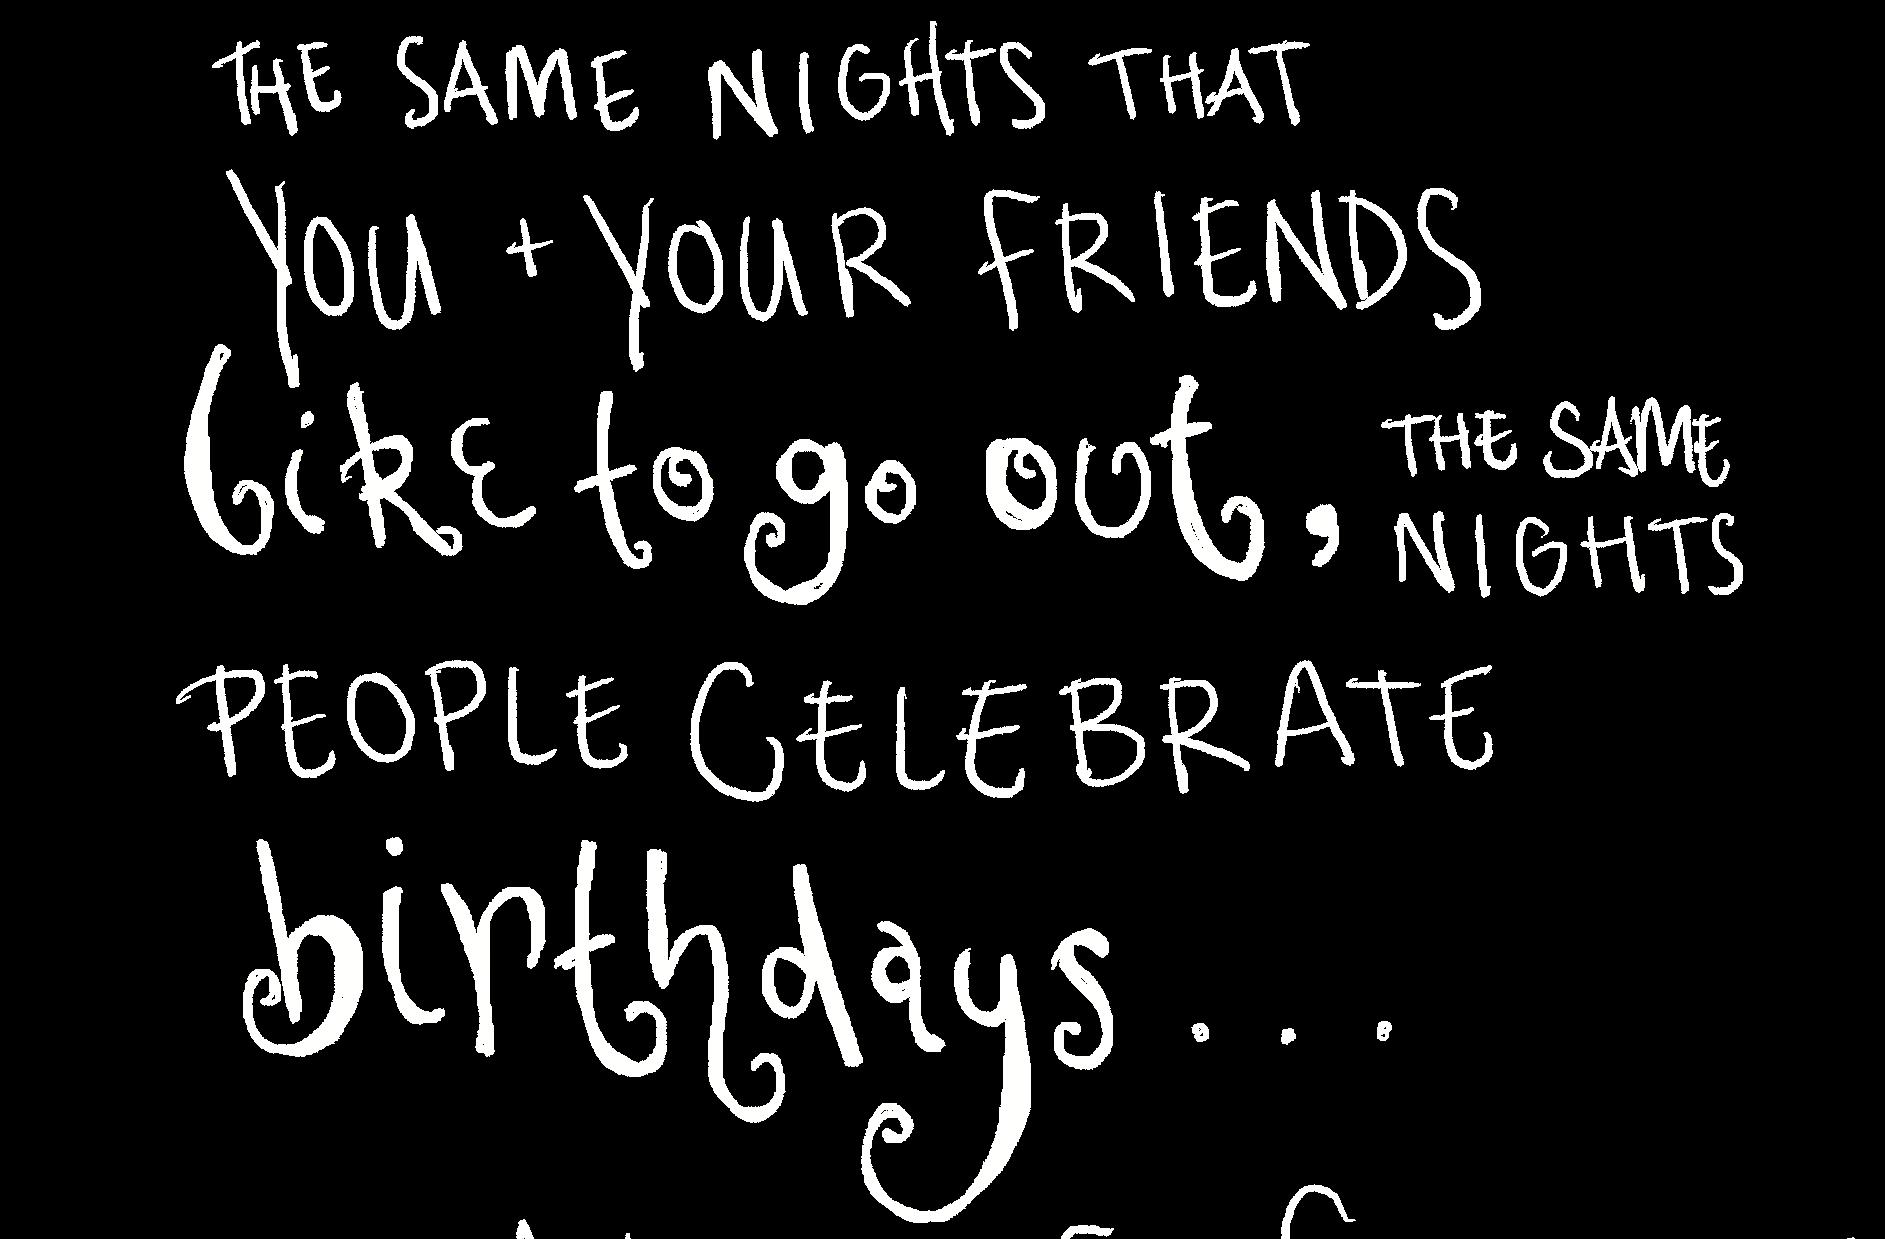 THE SAME NIGHTS THAT
YOU + YOUR FRIENDS
like to go out, THE SAME
NIGHTS
PEOPLE CELEBRATE
birthdays...